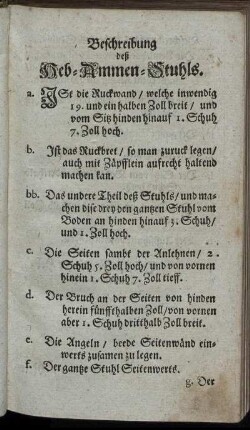 Beschreibung
deß
Heb-Ammen-Stuhls.
a. Ist die Ruckwand / welche inwendig
19. und ein halben Zoll breit / und
vom Sitz hinden hinauf 1. Schuh
7. Zoll hoch.
b. Ist das Ruckbret / so man zuruck legen /
auch mit Zäpfflein aufrecht haltend
machen kan.
bb. Das undere Theil deß Stuhls / und ma-
chen dise drey den gantzen Stuhl vom
Boden an hinden hinauf 3. Schuh /
und 1. Zoll hoch.
c. Die Seiten sambt der Anlehnen / 2.
Schuh 5. Zoll hoch / und von vornen
hinein 1. Schuh 7. Zoll tieff.
d. Der Bruch an der Seiten von hinden
herein fünffthalben Zoll / von vornen
aber 1. Schuh dritthalb Zoll breit.
e. Die Angeln / beede Seitenwänd ein-
werts zusamen zu legen.
f. Der gantze Stuhl Seitenwerts.
g. Der